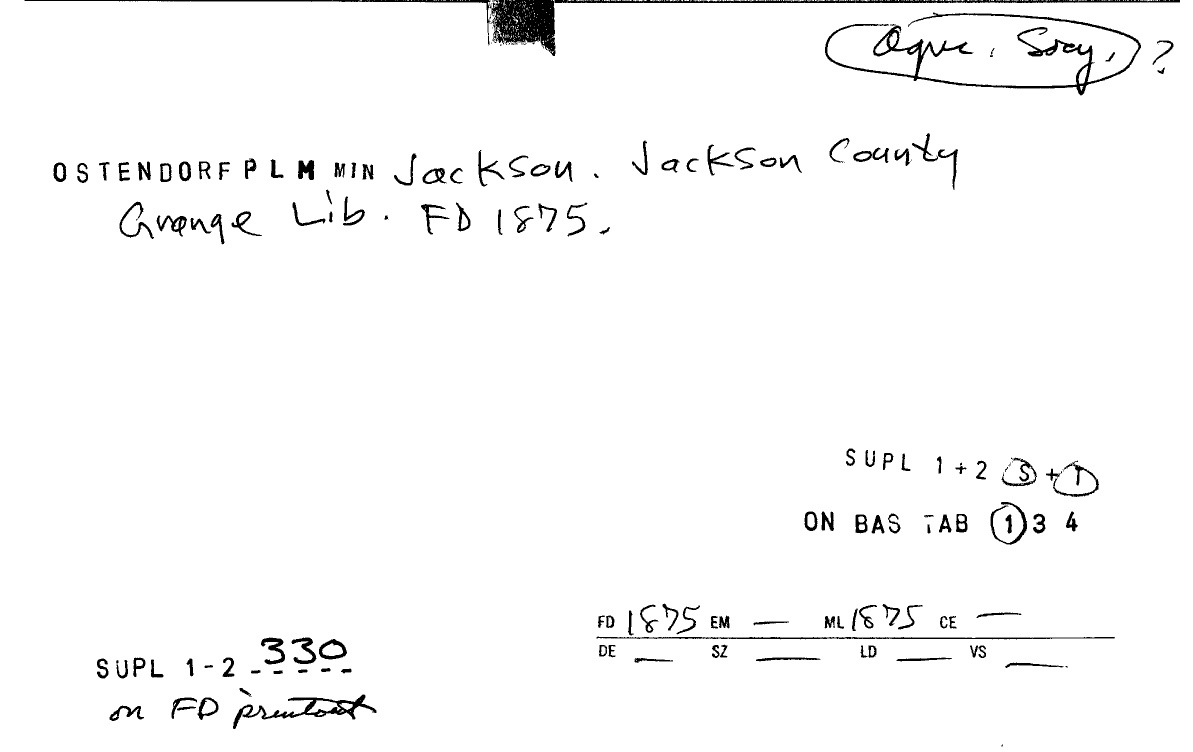 Agric. Socy. ?
OSTENDORF P L M MIN Jackson. Jackson County
Grange Lib. FD 1875.
SUPL 1+2 S+T
ON BAS TAB 1 3 4
FD 1875 EM — ML 1875 CE —
DE — SZ — LD — VS —
SUPL 1-2 330
on FD printout